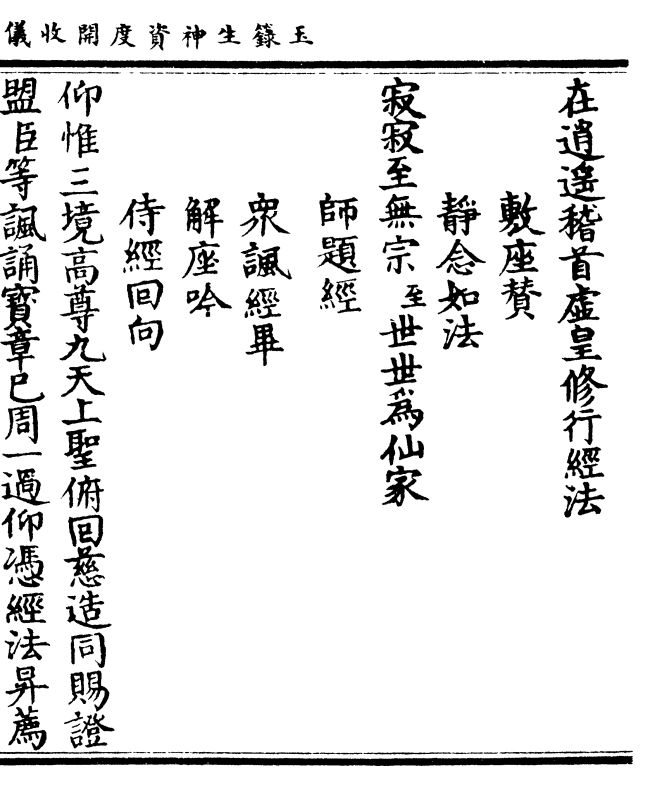 玉籙生神資度開收儀
在逍遙稽首虛皇修行經法
敷座賛
靜念如法
寂寂至無宗至世世為仙家
師題經
衆諷經畢
解座吟
侍經回向
仰惟三境高尊九天上聖俯回慈造同賜證
盟臣等諷誦寳章已周一過仰憑經法昇薦